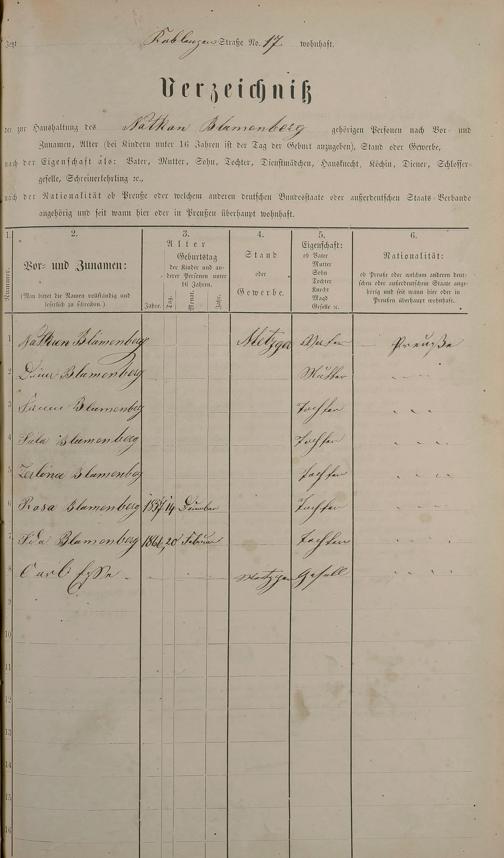 Jetzt Koblenzer Straße No. 17 wohnhaft.
Verzeichniß
der zur Haushaltung des Nathan Blumenberg gehörigen Personen nach Vor- und
Zunamen, Alter (bei Kindern unter 16 Jahren ist der Tag der Geburt anzugeben), Stand oder Gewerbe,
nach der Eigenschaft als: Vater, Mutter, Sohn, Tochter, Dienstmädchen, Hausknecht, Köchin, Diener, Schlosser-
geselle, Schreinerlehrling ꝛc.,
nach der Nationalität ob Preuße oder welchem anderen deutschen Bundesstaate oder außerdeutschen Staats-Verbande
angehörig und seit wann hier oder in Preußen überhaupt wohnhaft.
1. 2. 3. 4. 5. 6.
Nummer. Vor- und Zunamen:
(Man bittet die Namen vollständig und
leserlich zu schreiben.)
Alter
Geburtstag
der Kinder und an-
derer Personen unter
16 Jahren.
Jahre. Tag. Monat. Jahr.
Stand
oder
Gewerbe.
Eigenschaft:
ob Vater
Mutter
Sohn
Tochter
Knecht
Magd
Geselle ꝛc.
Nationalität:
ob Preuße oder welchem anderen deut-
schen oder außerdeutschen Staate ange-
hörig und seit wann hier oder in
Preußen überhaupt wohnhaft.
1 Nathan Blumenberg Metzger Vater Preuße
2 Blumenberg Mutter
3 Blumenberg Tochter
4 Blumenberg Tochter
5 Blumenberg Tochter
6 Rosa Blumenberg 1857 14 Tochter
7 Ida Blumenberg 20 Februar Tochter
8 Carl Metzger Gesell
9
10
11
12
13
14
15
16